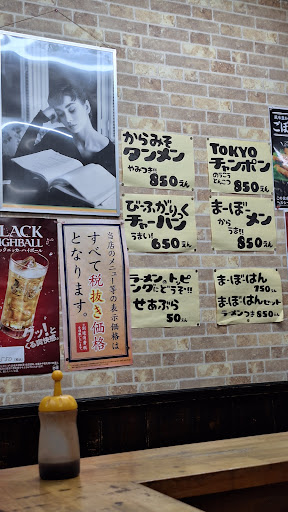 からみそ
タンメン
やみつき!!
850えん
TOKYO
チャンポン
のうこう
とんこつ
850えん
びーふがりっく
チャーハン
うまい!
650えん
まーぼー
メン
から
うま!!
850えん
ラーメントッピ
ングにどうぞ!!
せあぶら
50えん
まーぼーはん
750えん
まーぼーはんセット
ラーメンつき850えん
当店のメニュー等の表示価格は
すべて税抜き価格
となります。
BLACK
HIGHBALL
グッ!と
くる爽快感。
ごぼ